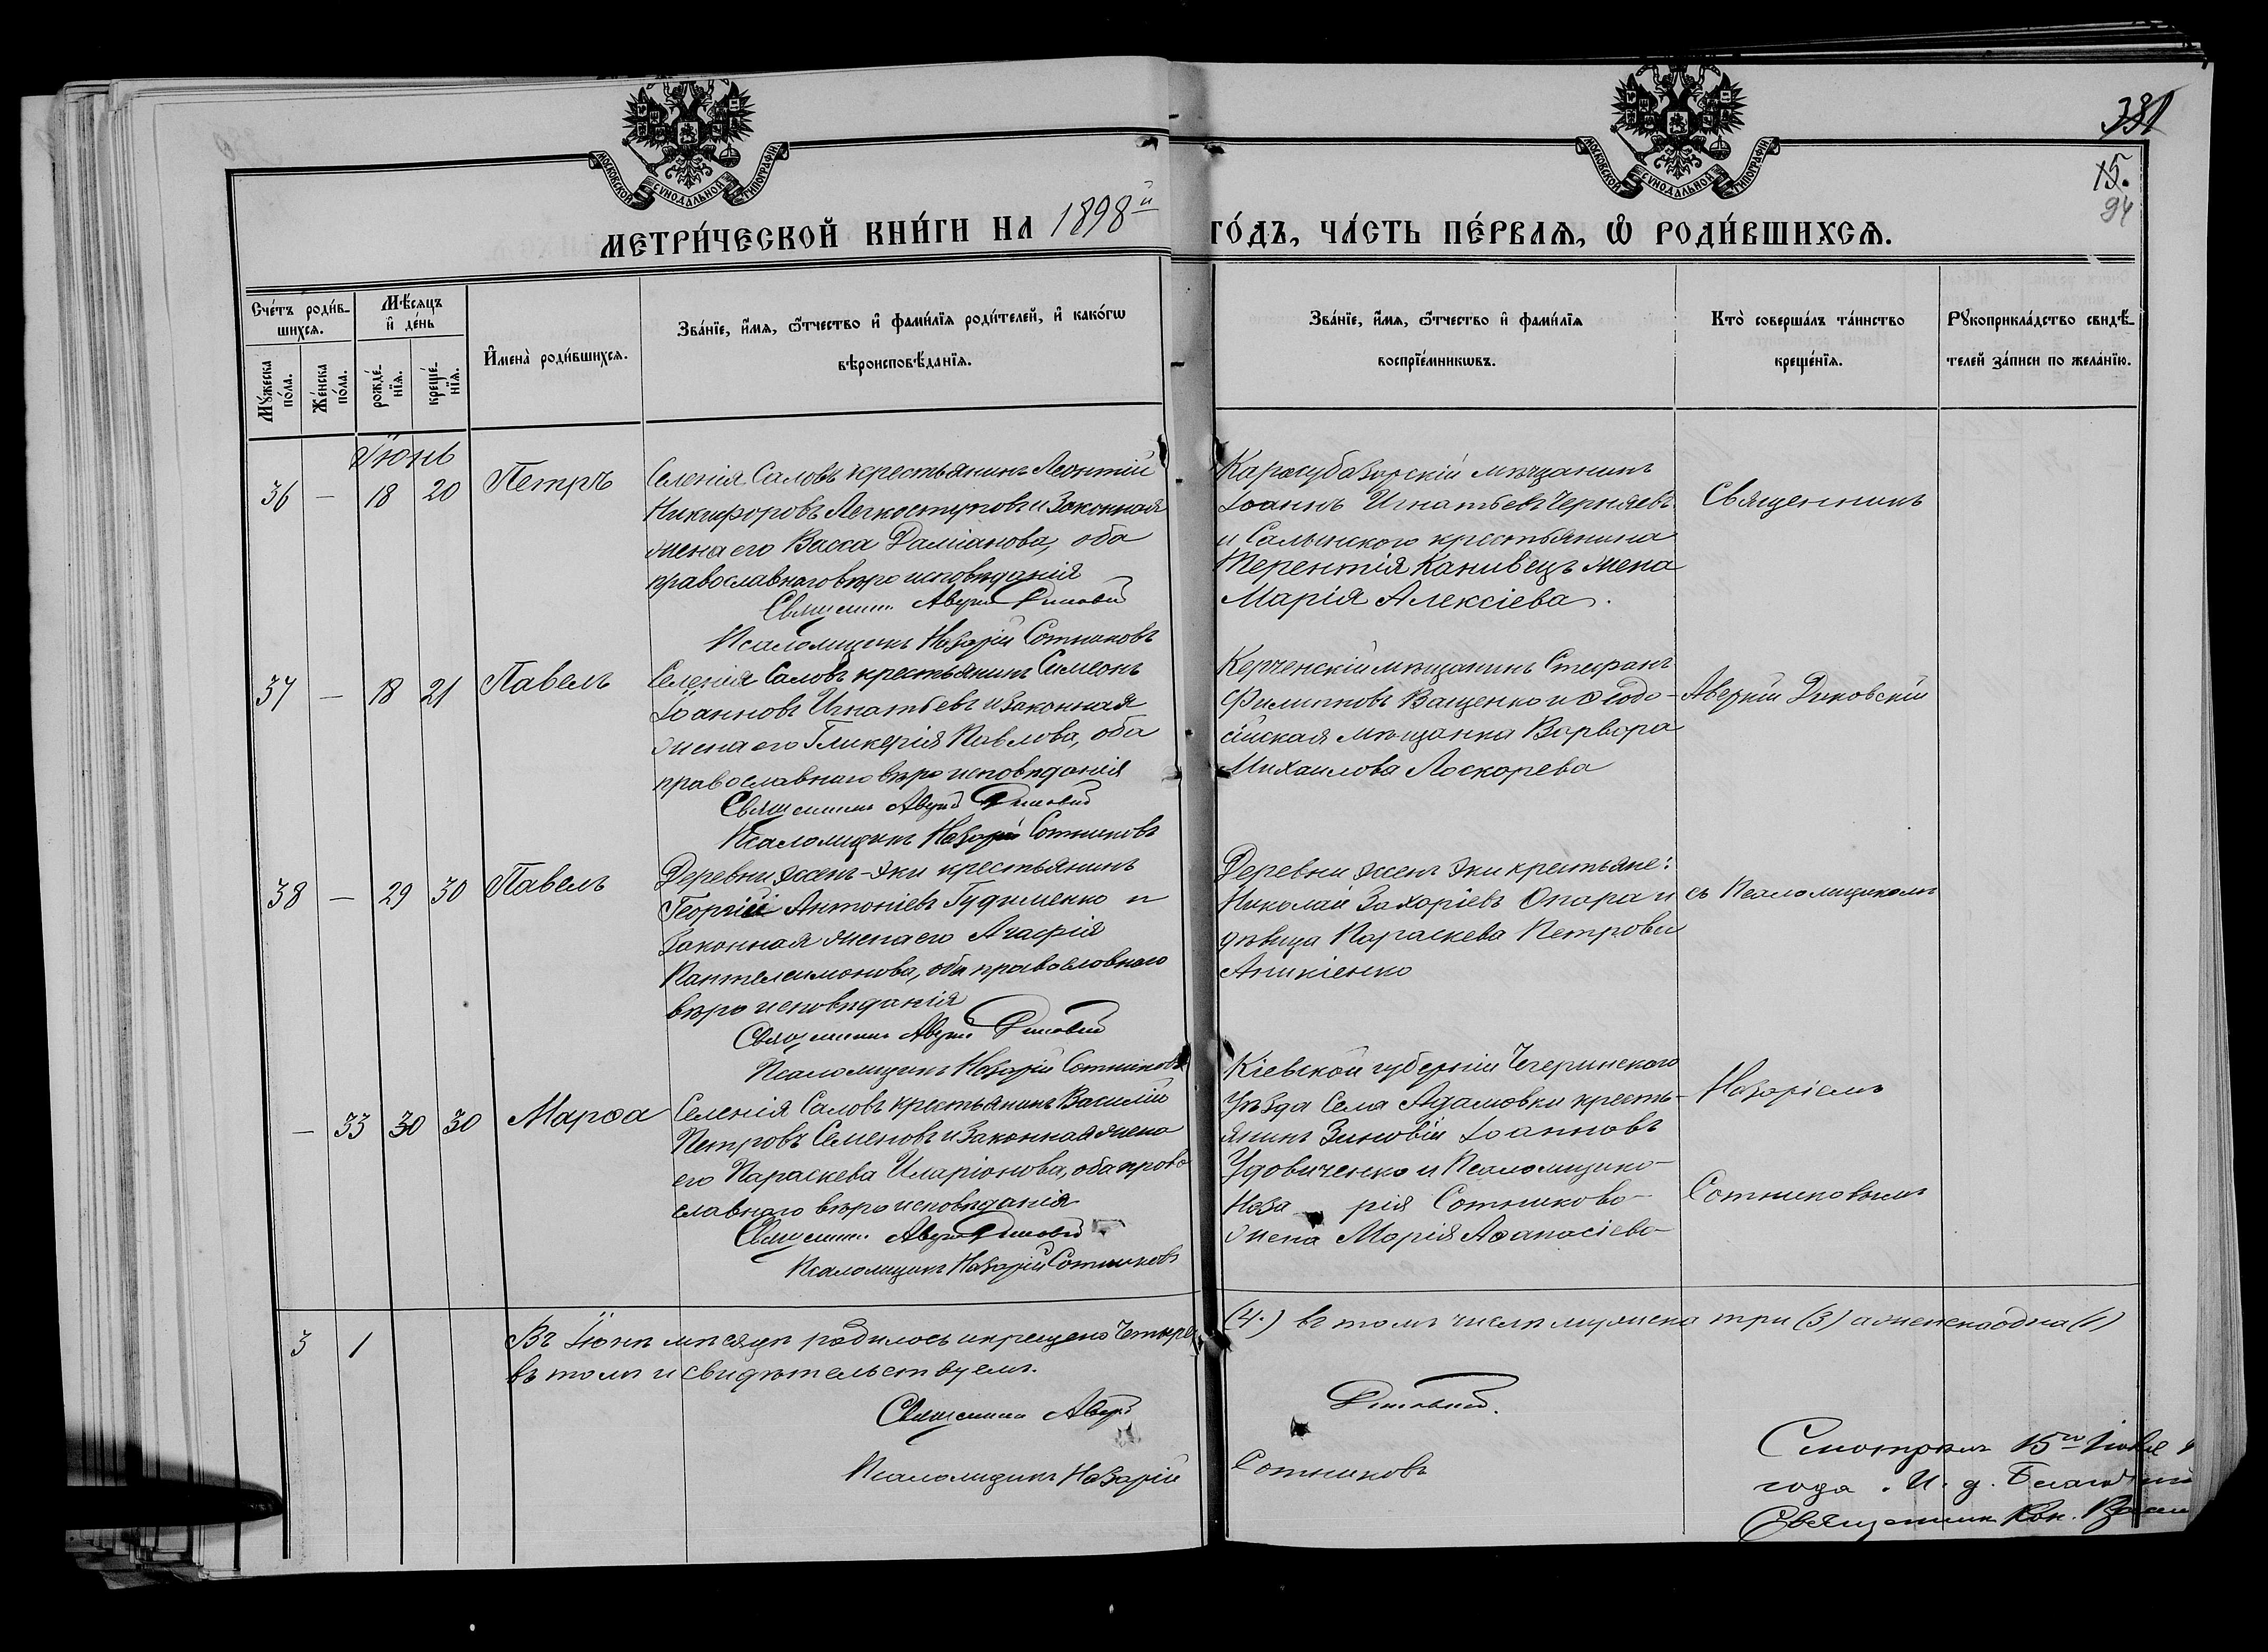 381
15.
94
МОСКОВСКОЙ СУНОДАЛЬНОЙ ТИПОГРАФІИ
МОСКОВСКОЙ СУНОДАЛЬНОЙ ТИПОГРАФІИ
МЕТРИ́ЧЕСКОЙ КНИ́ГИ НА 1898й ГО́ДЪ, ЧА́СТЬ ПЕ́РВАѦ, Ѡ҆ РОДИ́ВШИХСѦ.
Сче́тъ роди́в-
шихсѧ.
Мꙋ́жеска по́ла.
Же́нска по́ла.
Мѣ́сѧцъ и҆ де́нь
рожде́-нїѧ.
креще́-нїѧ.
И҆мена̀ роди́вшихсѧ.
Зва́нїе, и҆́мѧ, ѻ҆́тчество и҆ фами́лїѧ роди́телей, и҆ како́гѡ
вѣроисповѣ́данїѧ.
Зва́нїе, и҆́мѧ, ѻ҆́тчество и҆ фами́лїѧ
воспрїе́мникѡвъ.
Кто̀ соверша́лъ та́инство
креще́нїѧ.
Рꙋкоприкла́дство свидѣ́-
телей за́писи по жела́нїю.
Іюнь
36 — 18 20 Петръ
Селенія Саловъ крестьянинъ Леонтій
Никифоровъ Легкоступовъ и законная
жена его Васса Даміанова, оба
православнаго вѣроисповѣданія
Священникъ Аверкій Диковскій
Псаломщикъ Назарій Сотниковъ
Карасубазорскій мѣщанинъ
Іоаннъ Игнатьевъ Черняевъ
и Салынского крестьянина
Терентія Канивецъ жена
Марія Алексіева.
Священникъ
37 — 18 21 Павелъ
Селенія Саловъ крестьянинъ Симеонъ
Іоанновъ Игнатьевъ и законная
жена его Гликерія Павлова, оба
православнаго вѣроисповѣданія
Священникъ Аверкій Диковскій
Псаломщикъ Назарій Сотниковъ
Керченскій мѣщанинъ Стефанъ
Филипповъ Ващенко и Ѳеодо-
сійская мѣщанка Варвора
Михаилова Лоскорева
Аверкій Диковскій
38 — 29 30 Павелъ
Деревни Эссенъ-Эки крестьянинъ
Георгій Антоніевъ Гудименко и
законная жена его Агафія
Пантелеимонова, оба православнаго
вѣроисповѣданія
Священникъ Аверкій Диковскій
Псаломщикъ Назарій Сотниковъ
Деревни Эссенъ Эки крестьяне:
Николай Захаріевъ Опара и
дѣвица Параскева Петрова
Аникіенко
съ Псаломщикомъ
— 33 30 30 Марѳа
Селенія Саловъ крестьянинъ Василій
Петровъ Семеновъ и законная жена
его Параскева Иларіонова, оба право
славнаго вѣроисповѣданія
Священникъ Аверкій Диковскій
Псаломщикъ Назарій Сотниковъ
Кіевской губерніи Чегеринского
уѣзда села Адамовки кресть-
янинъ Зиновій Іоанновъ
Удовиченко и Псаломщика
Наза рія Сотникова
жена Марія Аѳанасіева
Назаріемъ
Сотниковымъ
3 1
Въ Іюнѣ мѣсяцѣ родилось и крещено четыре (4.) въ томъ числѣ мужеска три (3) а женска одна (1)
въ томъ и свидѣтельствуемъ.
Священникъ Аверкій Диковскій.
Псаломщикъ Назарій Сотниковъ
Смотрѣлъ 15го Іюля
года. И. д.
Священникъ Кон.